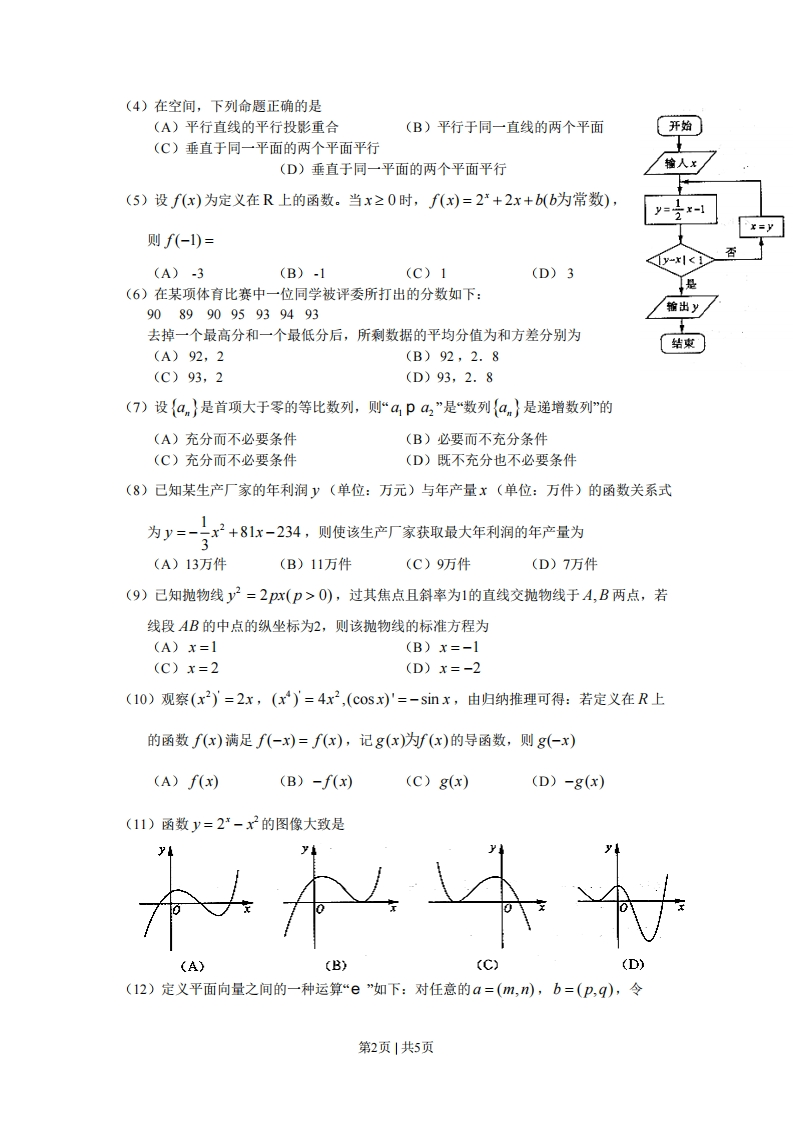 （4）在空间，下列命题正确的是
（A）平行直线的平行投影重合 （B）平行于同一直线的两个平面
（C）垂直于同一平面的两个平面平行
（D）垂直于同一平面的两个平面平行
（5）设 f(x) 为定义在 R 上的函数。当 x ≥ 0 时， f(x) = 2^x + 2x + b(b为常数)，
则 f(−1) =
（A） -3 （B） -1 （C） 1 （D） 3
（6）在某项体育比赛中一位同学被评委所打出的分数如下：
90 89 90 95 93 94 93
去掉一个最高分和一个最低分后，所剩数据的平均分值为和方差分别为
（A） 92，2 （B） 92 ，2．8
（C） 93，2 （D）93，2．8
（7）设 {a_n} 是首项大于零的等比数列，则“ a_1 p a_2 ”是“数列 {a_n} 是递增数列”的
（A）充分而不必要条件 （B）必要而不充分条件
（C）充分而不必要条件 （D）既不充分也不必要条件
（8）已知某生产厂家的年利润 y （单位：万元）与年产量 x （单位：万件）的函数关系式
为 y = −1/3 x² + 81x − 234，则使该生产厂家获取最大年利润的年产量为
（A）13万件 （B）11万件 （C）9万件 （D）7万件
（9）已知抛物线 y² = 2px(p > 0)，过其焦点且斜率为1的直线交抛物线于 A, B 两点，若
线段 AB 的中点的纵坐标为2，则该抛物线的标准方程为
（A） x = 1 （B） x = −1
（C） x = 2 （D） x = −2
（10）观察 (x²)' = 2x， (x⁴)' = 4x²,(cos x)' = −sin x，由归纳推理可得：若定义在 R 上
的函数 f(x) 满足 f(−x) = f(x)，记 g(x)为f(x) 的导函数，则 g(−x)
（A） f(x) （B） −f(x) （C） g(x) （D） −g(x)
（11）函数 y = 2^x − x² 的图像大致是
y O x
y O x
y O x
y O x
（A） （B） （C） （D）
（12）定义平面向量之间的一种运算“e ”如下：对任意的 a = (m,n)， b = (p,q)，令
第2页 | 共5页
开始
输入x
y=1/2 x-1
x=y
|y-x|<1
否
是
输出y
结束